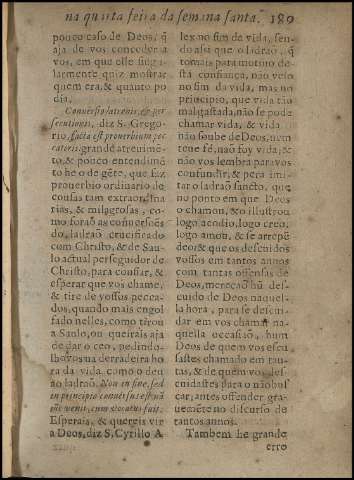 na quarta feira da semana santa. 189
pouco caso de Deos, q̃
aja de vos conceder a
vos, em que elle singu-
larmente quiz mostrar
quem era, & quanto po
dia.
Conuersio latronis, & per
secutionis, diz S. Grego-
rio, facta est prouerbium pec
catoris. grande atreuimẽ-
to, & pouco entendimẽ
to he o de gẽte, que faz
prouerbio ordinario de
cousas tam extraordina
rias, & milagrosas, co-
mo foraõ as conuersoẽs
do ladraõ crucificado
com Christo, & de Sau-
lo actual perseguidor de
Christo, para confiar, &
esperar que vos chame,
& tire de vossos pecca-
dos, quando mais engol
fado nelles, como tirou
a Saulo, ou queirais aja
de dar o ceo, pedindo-
lho vos na derradeira ho
ra da vida, como o deu
ao ladraõ. Non in fine, sed
in principio conuersus est
venit, cum vocatus fuit.
Esperais, & quereis vir
a Deos, diz S. Cyrillo A
lex no fim de vida, sen-
do assi que o ladraõ, q̃
tomais para motiuo de
sta confiança, não veio
no fim da vida, mas no
principio, que vida tão
malgastada, não se pode
chamar vida, & vida
não soube de Deos, nem
teue fé, naõ foy vida; &
não vos lembra para vos
confundir, & pera imi-
tar o ladraõ sancto, que
no ponto em que Deos
o chamou, & o illustrou
logo acodio, logo creo,
logo amou, & se arrepẽ
deo: & que os descuidos
vossos em tantos annos
com tantas offensas de
Deos, mereçaõ hũ des-
cuido de Deos naquel-
la hora, para se descui-
dar em vos chamar na-
quella occasiaõ, hum
Deos de quem vos escu
sastes chamado em tan-
tas, & de quem vos des-
cuidastes para o não bus
car; antes offender gra-
uemẽte no discurso de
tantos annos.
Tambem he grande
erro